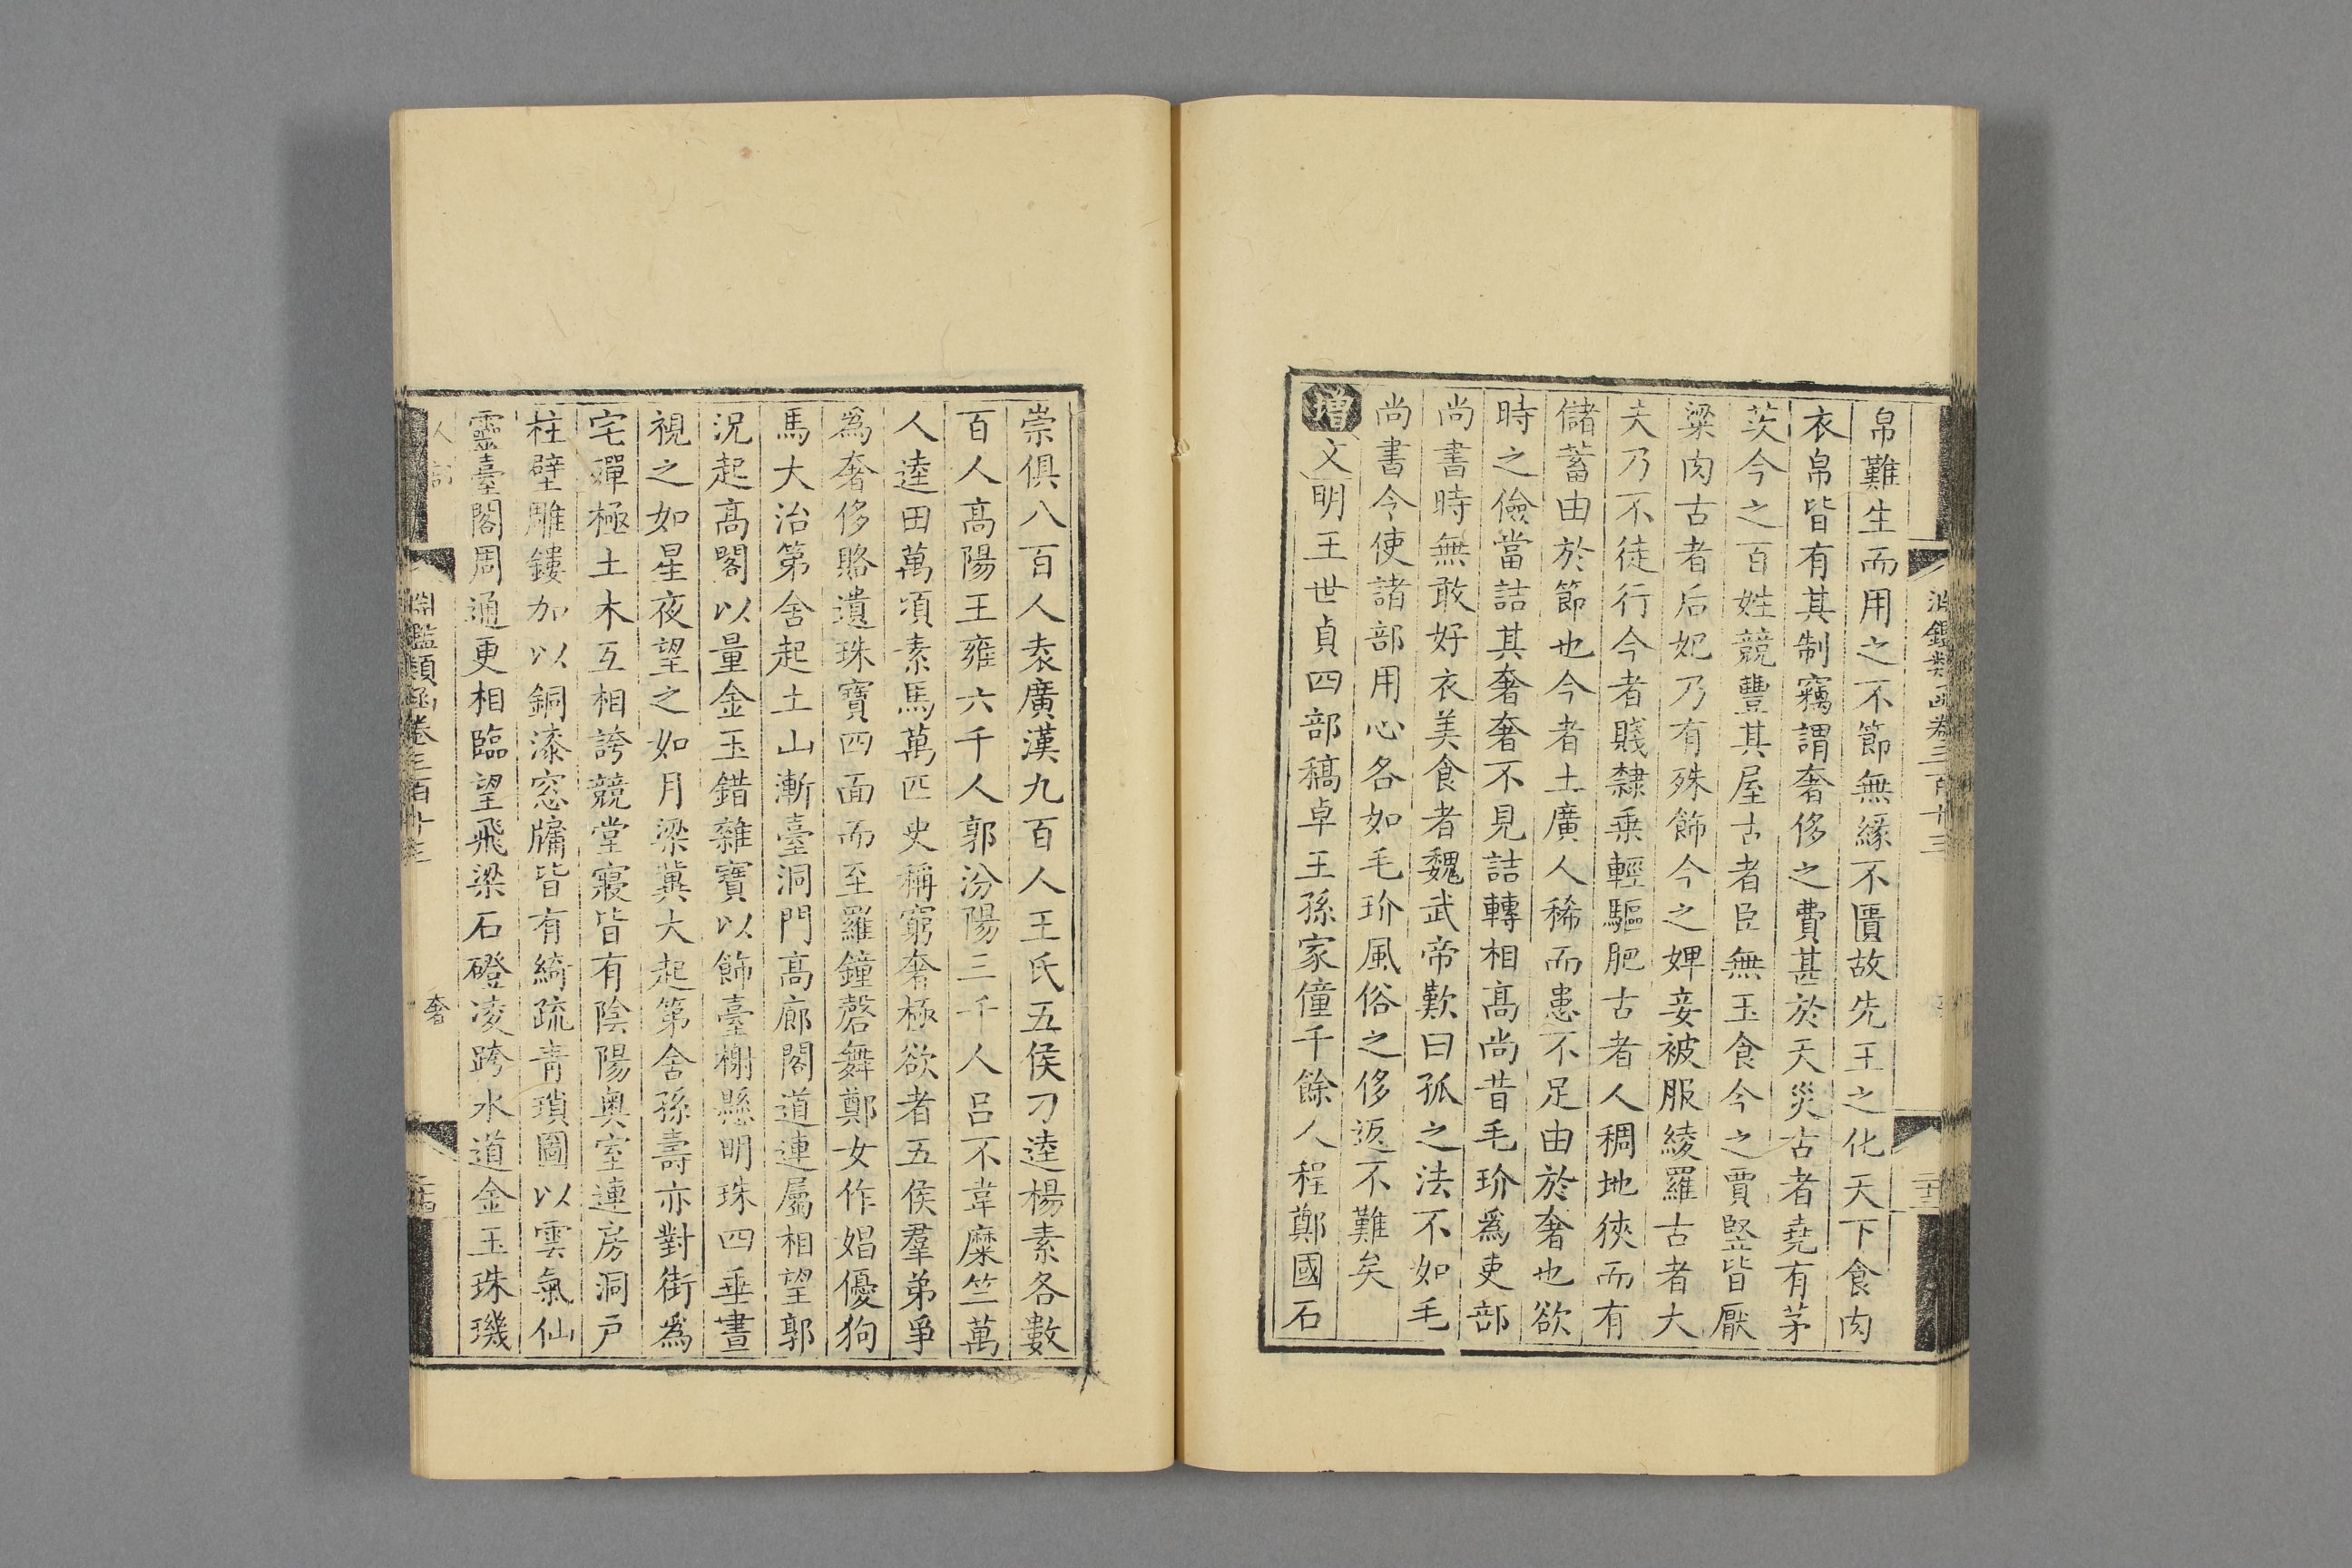 淵鑑類函卷三百十三
二十三
帛難生而用之不節無緣不匱故先王之化天下食肉
衣帛皆有其制竊謂奢侈之費甚於天災古者堯有茅
茨今之百姓競豐其屋古者臣無玉食今之賈豎皆厭
粱肉古者后妃乃有殊飾今之婢妾被服綾羅古者大
夫乃不徒行今者賤隸乗輕驅肥古者人稠地狹而有
儲蓄由於節也今者土廣人稀而患不足由於奢也欲
時之儉當詰其奢奢不見詰轉相髙尚昔毛玠爲吏部
尚書時無敢好衣美食者魏武帝歎曰孤之法不如毛
尚書令使諸部用心各如毛玠風俗之侈返不難矣
增文明王世貞四部稿卓王孫家僮千餘人程鄭國石
崇俱八百人袁廣漢九百人王氏五侯刁逵楊素各數
百人髙陽王雍六千人郭汾陽三千人呂不韋糜竺萬
人逵田萬頃素馬萬匹史稱窮奢極欲者五侯羣弟爭
爲奢侈賂遺珠寶四面而至羅鐘磬舞鄭女作娼優狗
馬大治第舍起土山漸臺洞門髙廊閣道連屬相望郭
況起髙閣以量金玉錯雜寶以飾臺榭懸明珠四垂晝
視之如星夜望之如月梁冀大起第舍孫壽亦對街爲
宅殫極土木互相誇競堂寢皆有陰陽奥室連房洞戸
柱壁雕鏤加以銅漆窓牖皆有綺疏青瑣圖以雲氣仙
靈臺閣周通更相臨望飛梁石磴凌跨水道金玉珠璣
人部
淵鑑類函卷三百十三
奢
二十四